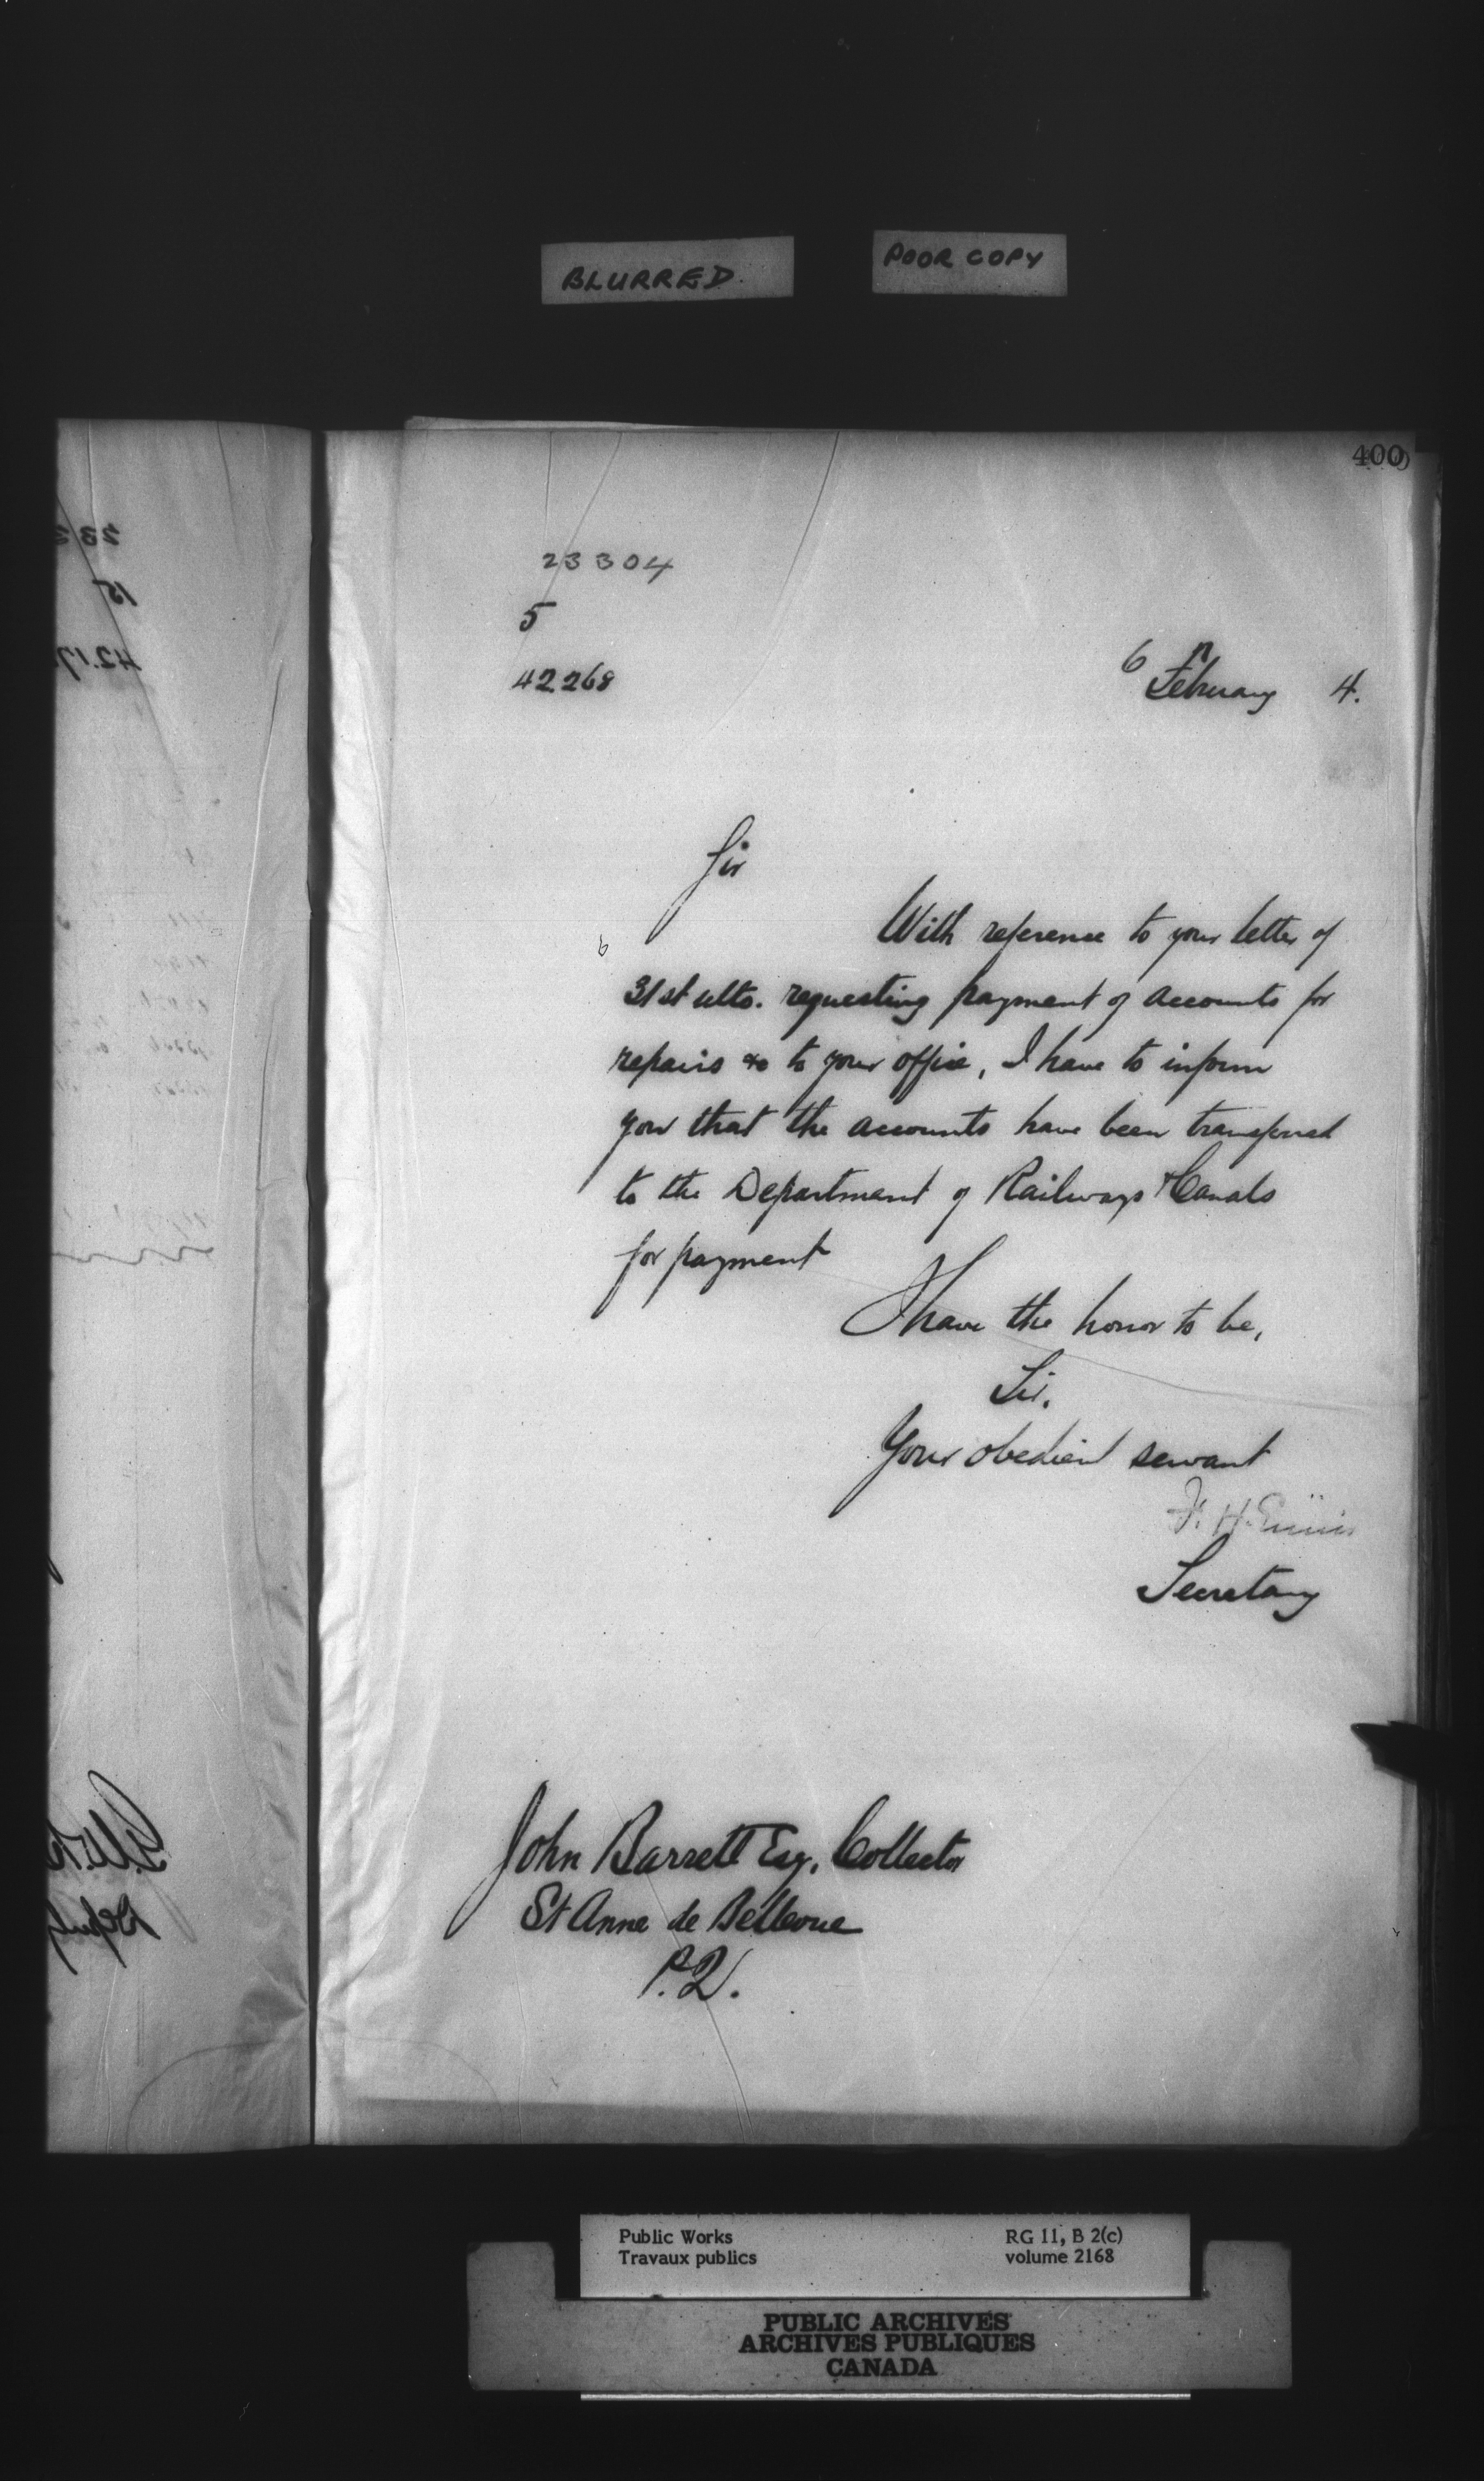 BLURRED.
POOR COPY
400
23304
5
42268
6th February 4.
Sir
With reference to your letter of
31st ulto. requesting payment of accounts for
repairs &c to your office, I have to inform
you that the accounts have been transferred
to the Department of Railways & Canals
for payment
I have the honor to be,
Sir.
Your obedient servant
F. H. Ennis
Secretary
John Barrett Esq. Collector
St Anne de Bellevue
P.Q.
Public Works
Travaux publics
RG 11, B 2(c)
volume 2168
PUBLIC ARCHIVES
ARCHIVES PUBLIQUES
CANADA